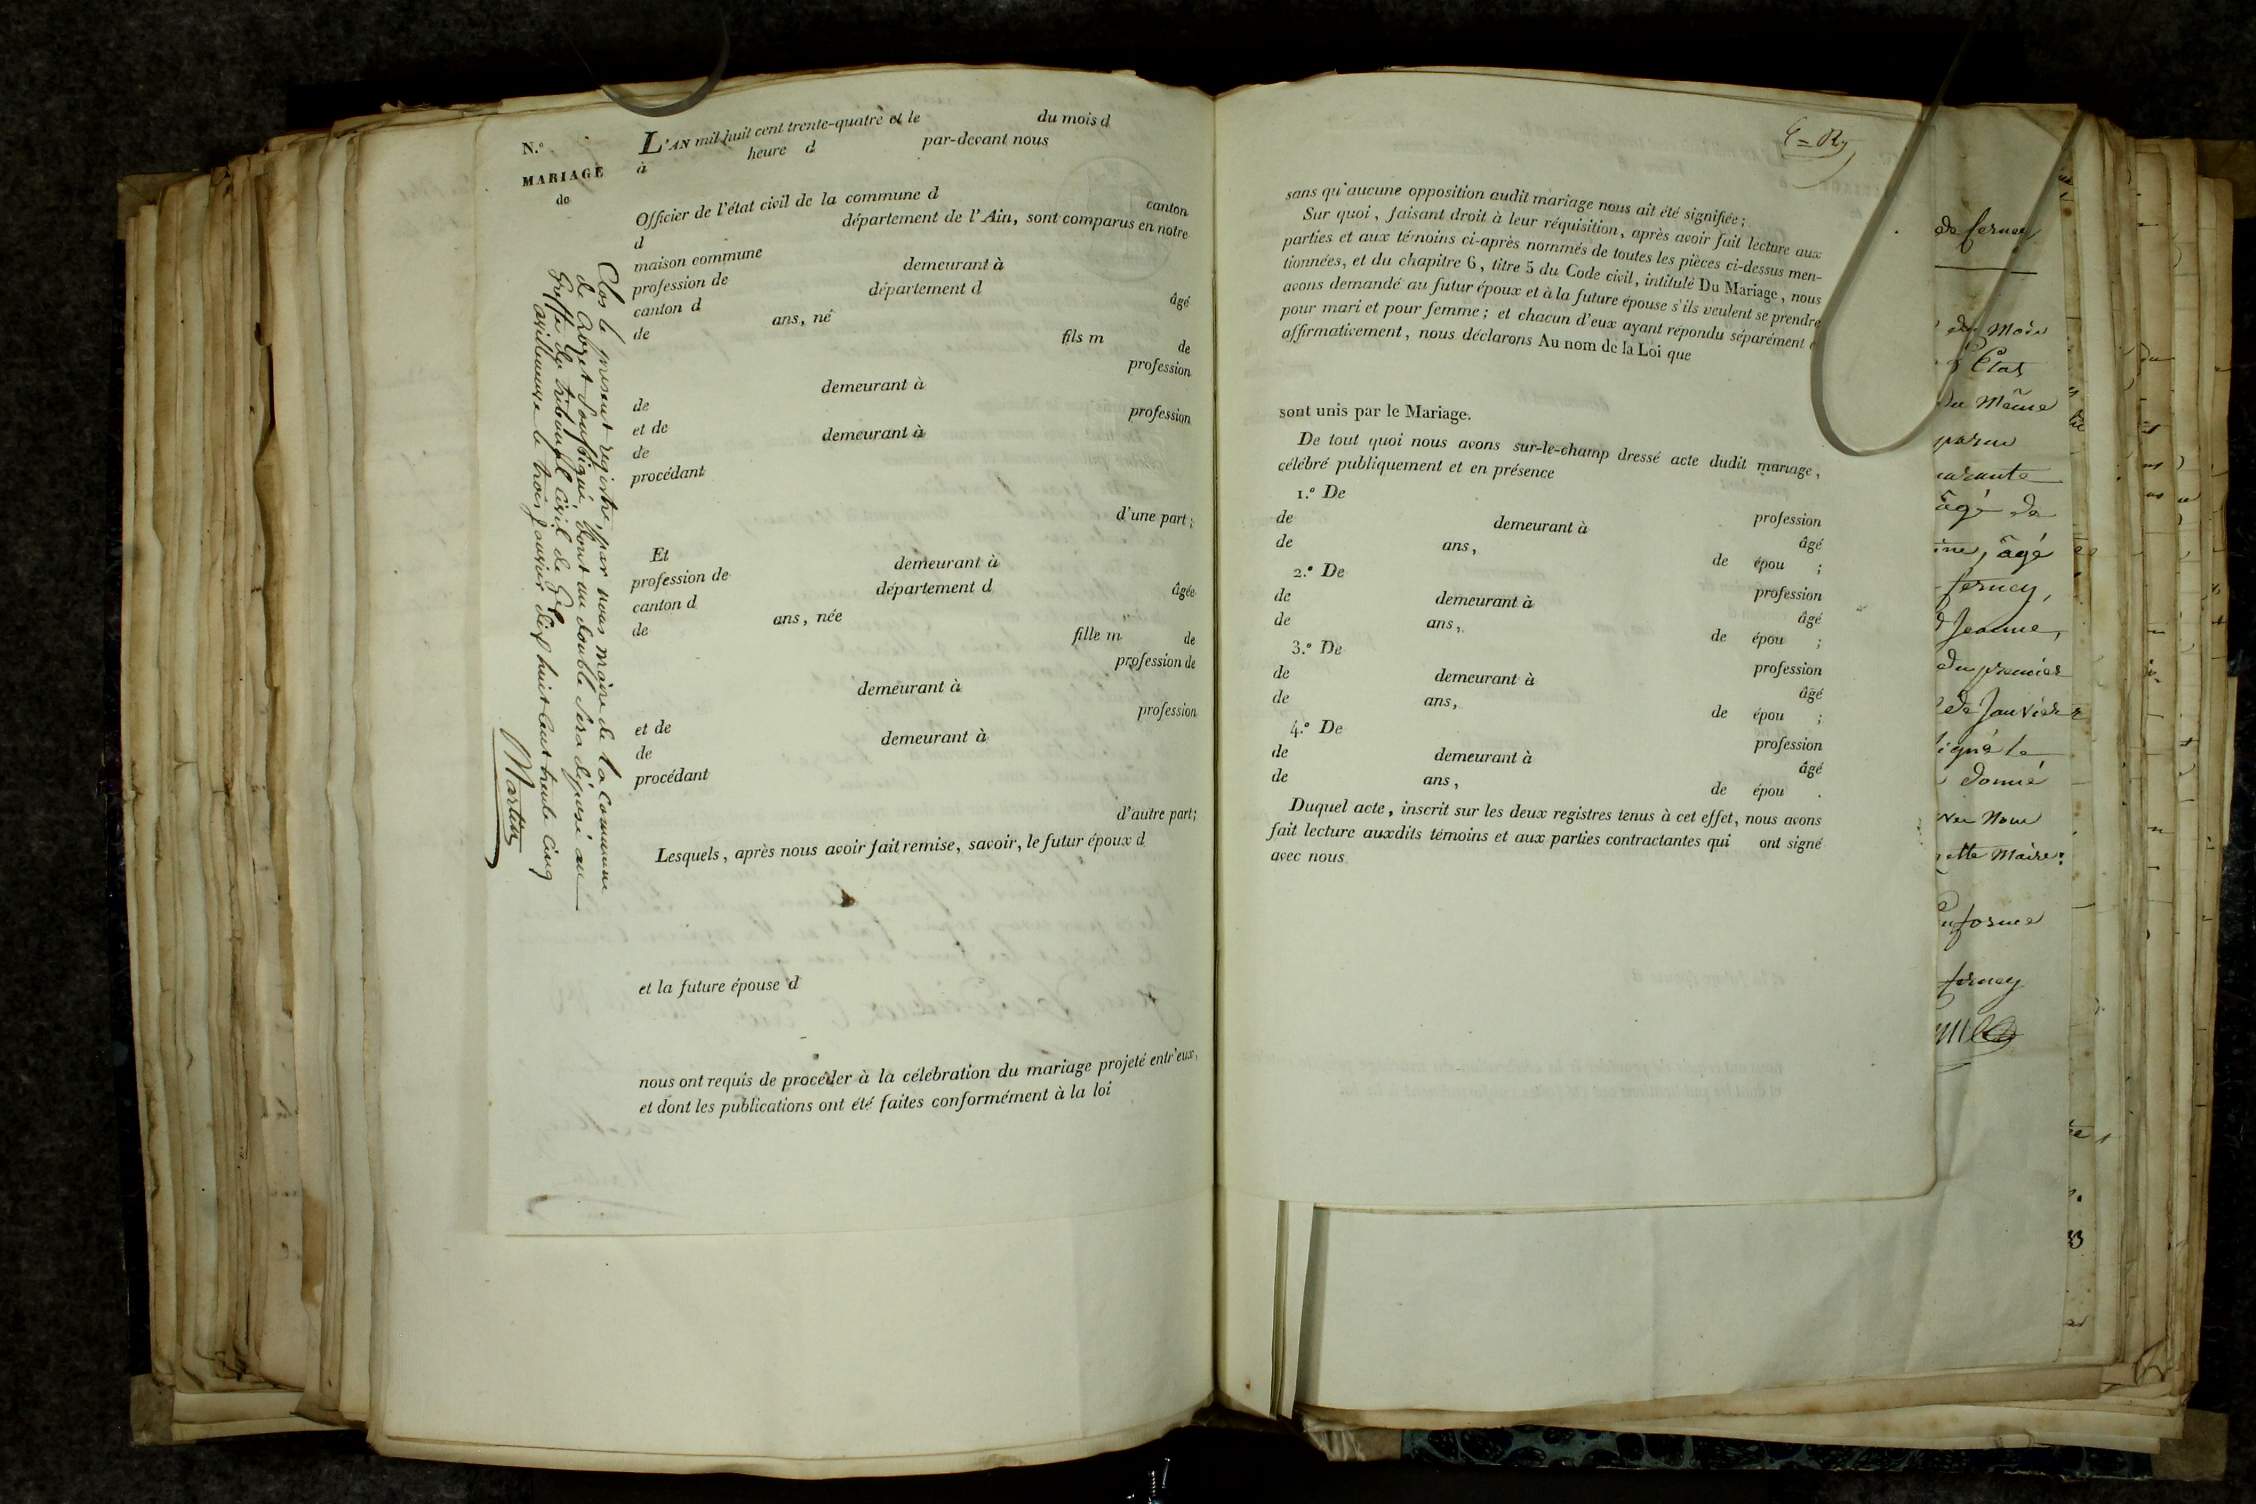 N.º
MARIAGE
de
L'AN mil huit cent trente-quatre et le du mois d
à heure d par-devant nous
Officier de l'état civil de la commune d canton
d département de l'Ain, sont comparus en notre
maison commune
profession de demeurant à
canton d département d âgé
de ans, né
fils m de
profession
de demeurant à
et de profession
de demeurant à
procédant
d'une part;
Et
profession de demeurant à
canton d département d âgée
de ans, née
fille m de
profession de
demeurant à
et de profession
de demeurant à
procédant
d'autre part;
Lesquels, après nous avoir fait remise, savoir, le futur époux d
et la future épouse d
nous ont requis de procéder à la célébration du mariage projeté entr'eux,
et dont les publications ont été faites conformément à la loi
Clos le présent registre, par nous maire de la commune
de Crozet soussigné, dont un double sera déposé au
Greffe du tribunal civil de Gex
le trois janvier dix huit cent trente cinq
Martin
sans qu'aucune opposition audit mariage nous ait été signifiée;
Sur quoi, faisant droit à leur réquisition, après avoir fait lecture aux
parties et aux témoins ci-après nommés de toutes les pièces ci-dessus men-
tionnées, et du chapitre 6, titre 5 du Code civil, intitulé Du Mariage, nous
avons demandé au futur époux et à la future épouse s'ils veulent se prendre
pour mari et pour femme; et chacun d'eux ayant répondu séparément e
affirmativement, nous déclarons Au nom de la Loi que
sont unis par le Mariage.
De tout quoi nous avons sur-le-champ dressé acte dudit mariage,
célébré publiquement et en présence
1.º De
de demeurant à profession
de ans, âgé
de épou ;
2.º De
de demeurant à profession
de ans, âgé
de épou ;
3.º De
de demeurant à profession
de ans, âgé
de épou ;
4.º De
de demeurant à profession
de ans, âgé
de épou .
Duquel acte, inscrit sur les deux registres tenus à cet effet, nous avons
fait lecture auxdits témoins et aux parties contractantes qui ont signé
avec nous
de ferney
du Mois
Etat
du même
âgé de
âgé
ferney,
Jeanne,
du premier
de Janvier
donné
Nous
Maire:
ferney
33